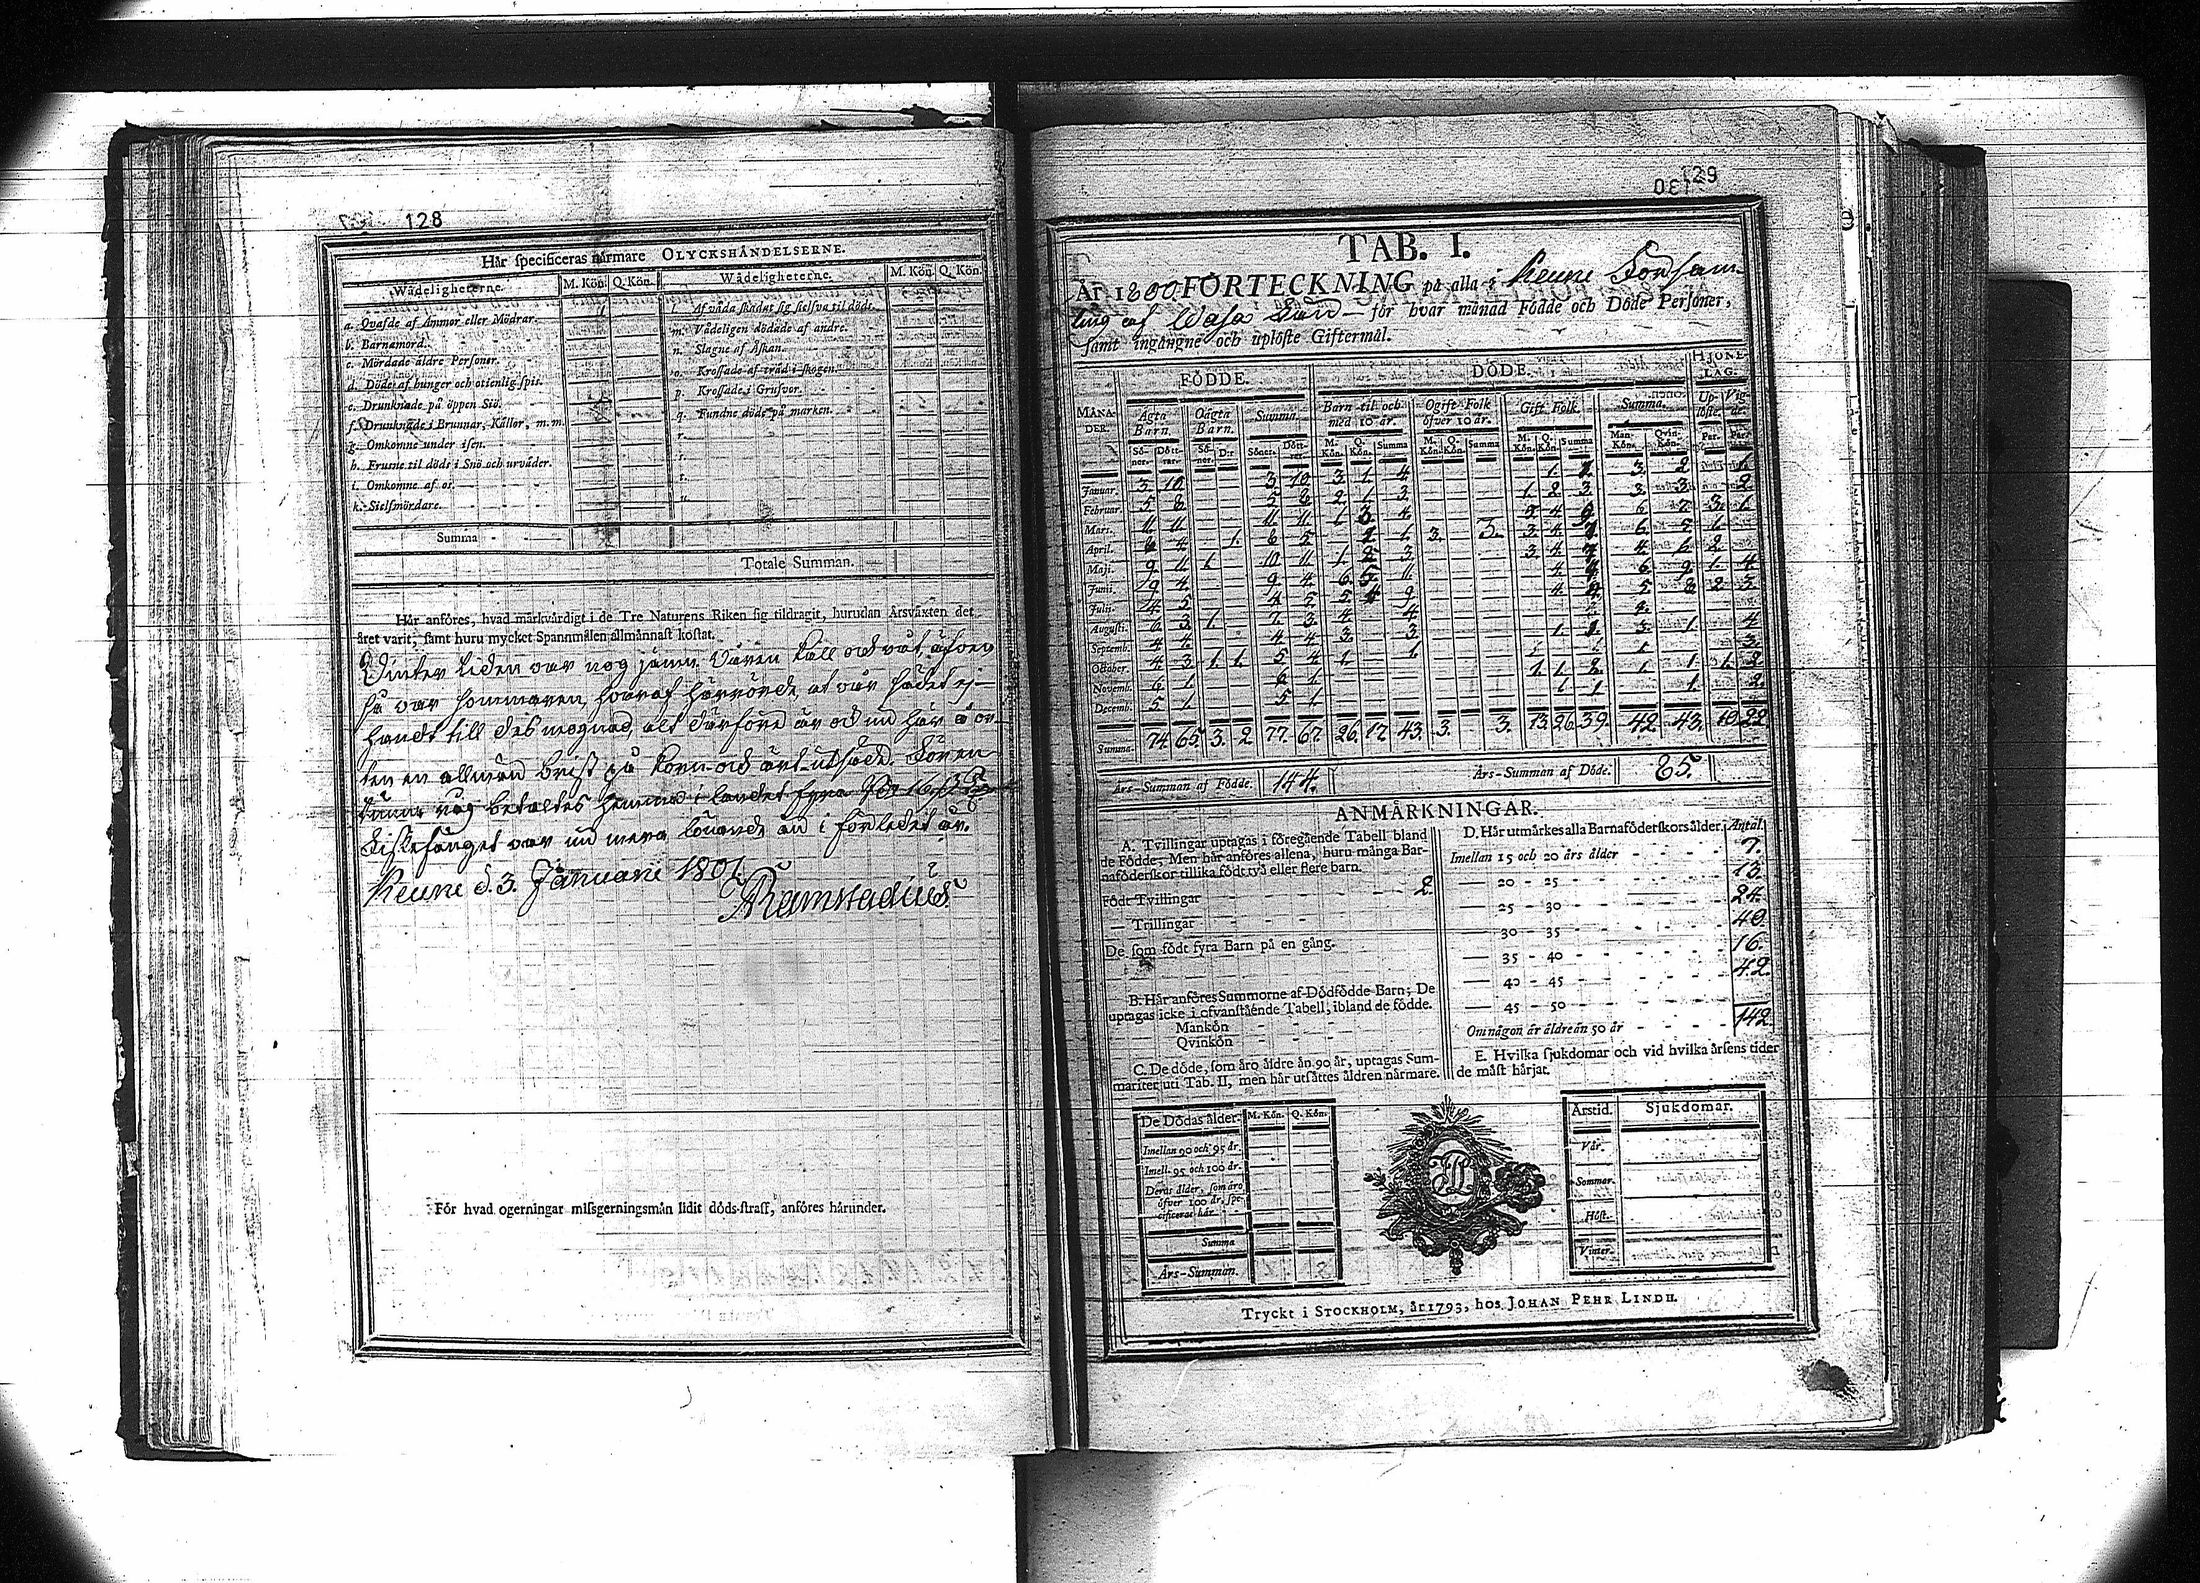 128
Här specificeras närmare OLYCKSHÄNDELSERNE.
Wådeligheterne. M. Kön. Q. Kön. Wådeligheterne. M. Kön. Q. Kön.
a. Qvafde af Ammor eller Mödrar. l. Af våda skadat sig sielfva til döds.
b. Barnamord. m. Vådeligen dödade af andre.
c. Mördade äldre Personer. n. Slagne af Åskan.
d. Döde af hunger och otienlig spis. o. Krossade af träd i skogen.
e. Drunknade på öppen Siö. p. Krossade i Grufvor.
f. Drunknade i Brunnar, Källor, m. m. q. Fundne döde på marken.
g. Omkomne under isen. r.
h. Frusne til döds i Snö och urväder. s.
i. Omkomne af os. t.
k. Sielfmördare. u.
Summa
Totale Summan.
Här anföres, hvad märkvärdigt i de Tre Naturens Riken sig tildragit, hurudan Årsväxten det
året varit, samt huru mycket Spannmålen allmännast kostat.
Vinter tiden var nog jämn. Våren kall och våt, äfven
så var sommaren, hvaraf härrörde at vår säd ej
hant till des mognad, alt därföre är och nu här å or-
ten en allmän brist på korn och ärt-utsäde.
Fiskefånget var nu mera lönande än i förledet år.
Reune d. 3. Januarii 1801.
129
TAB. I.
År 1800 FÖRTECKNING på alla i Reune Församl-
ling af Wasa Län – för hvar månad Födde och Döde Personer,
samt ingångne och uplöste Giftermål.
FÖDDE. DÖDE. HJONE-LAG.
MÅNADER. Ägta Barn. Oägta Barn. Summa. Barn til och med 10 år. Ogift Folk öfver 10 år. Gift Folk. Summa. Uplöste. Vigde.
Söner. Döttrar. Söner. D:r Söner. Döttrar. M. Kön. Q. Kön. Summa M. Kön. Q. Kön. Summa M. Kön. Q. Kön. Summa Mankön. Qvinkön. Par. Par.
Januar. 3. 10. 3. 10. 3. 1. 4. 1. 1. 3. 2. 1.
Februar. 5. 8. 5. 8. 2. 1. 3. 1. 2. 3. 3. 3. 2.
Mars. 11. 11. 11. 11. 1. 3. 4. 5. 4. 9. 6. 7. 3. 1.
April. 6. 4. 1. 6. 5. 1. 1. 3. 3. 3. 4. 7. 6. 5. 1.
Maji. 9. 11. 1. 10. 11. 1. 2. 3. 3. 4. 7. 4. 6. 2.
Junii. 9. 4. 9. 4. 6. 5. 11. 4. 4. 6. 9. 1. 4.
Julii. 4. 5. 4. 5. 5. 4. 9. 4. 4. 5. 8. 2. 3.
Augusti. 6. 3. 1. 7. 3. 4. 4. 4.
Septemb. 4. 4. 4. 4. 3. 3. 1. 1. 3. 1. 4.
October. 4. 3. 1. 1. 5. 4. 1. 1. 1. 3.
Novemb. 6. 1. 6. 1. 1. 1. 2. 1. 1. 1. 2.
Decemb. 5. 1. 5. 1. 1. 1. 1. 2.
Summa. 74. 65. 3. 2. 77. 67. 26. 17. 43. 3. 3. 13. 26. 39. 42. 43. 10. 22.
Års-Summan af Födde. 144. Års-Summan af Döde. 85.
ANMÄRKNINGAR.
A. Tvillingar uptagas i föregående Tabell bland
de Födde; Men här anföres allena, huru många Bar-
naföderskor tillika födt två eller flere barn.
Födt Tvillingar 2.
— Trillingar
De som födt fyra Barn på en gång.
B. Här anföres Summorne af Dödfödde Barn; De
uptagas icke i ofvanstående Tabell, ibland de födde.
Mankön
Qvinkön
C. De döde, som äro äldre än 90 år, uptagas Sum-
mariter uti Tab. II, men här utsättes åldren närmare.
D. Här utmärkes alla Barnaföderskors ålder. Antal.
Imellan 15 och 20 års ålder 7.
— 20 - 25 13.
— 25 - 30 24.
— 30 - 35 40.
— 35 - 40 16.
— 40 - 45 42.
— 45 - 50
Om någon är äldre än 50 år 142.
E. Hvilka sjukdomar och vid hvilka årsens tider
de mäst härjat.
De Dödas ålder. M. Kön. Q. Kön.
Imellan 90 och 95 år.
Imell. 95 och 100 år.
Deras ålder, som äro
öfver 100 år, spe-
cificeras här
Summa
Års-Summan.
Årstid. Sjukdomar.
Vår.
Sommar.
Höst.
Vinter.
Tryckt i STOCKHOLM, år 1793, hos JOHAN PEHR LINDH.
För hvad ogerningar missgerningsmän lidit döds-straff, anföres härunder.